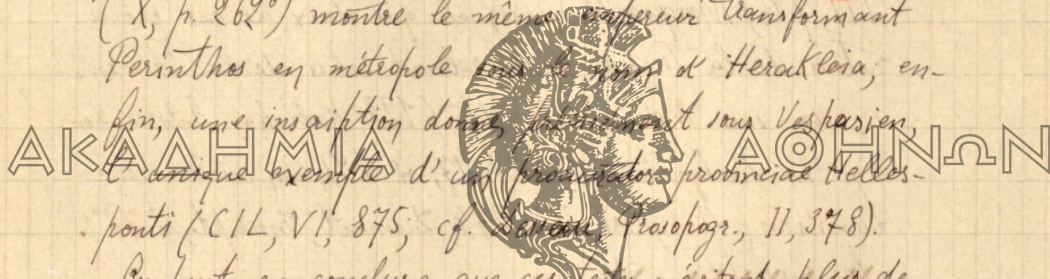 (X, p. 262°) montre le même empereur transformant
Perinthos en métropole sous le nom d'Herakleia; en-
fin, une inscription donne, précisément sous Vespasien,
l'unique exemple d'un procurator provinciae Helles-
ponti (CIL, VI, 875; cf. Dessau, Prosopogr., II, 378).
ΑΚΑΔΗΜΙΑ ΑΘΗΝΩΝ
que ces
plus de